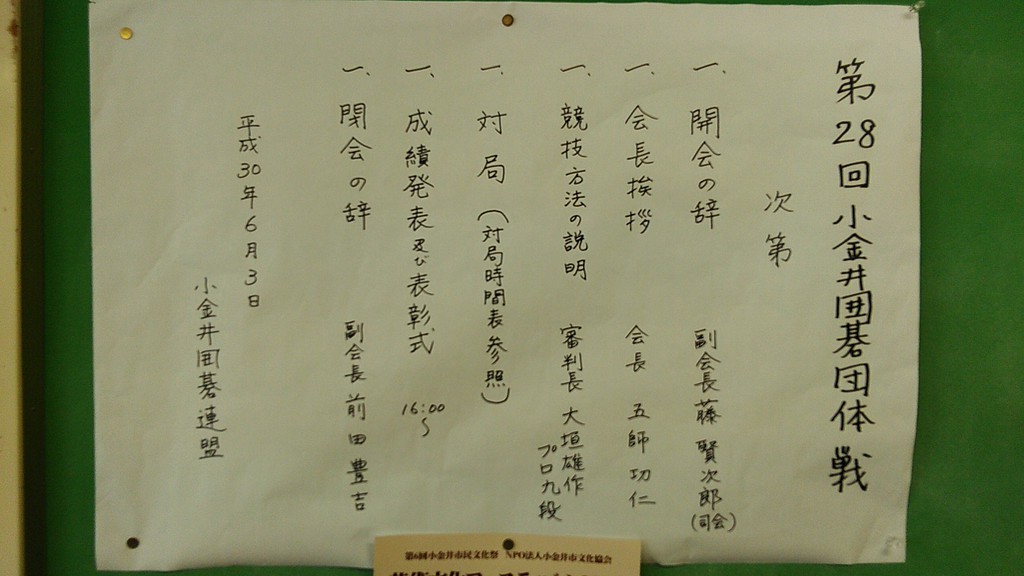 第28回 小金井囲碁団体戦
次第
一、開会の辞 副会長 藤 賢次郎(司会)
一、会長挨拶 会長 五師 功仁
一、競技方法の説明 審判長 大垣雄作
プロ九段
一、対局(対局時間表参照)
一、成績発表及び表彰式 16:00~
一、閉会の辞 副会長 前田豊吉
平成30年6月3日
小金井囲碁連盟
第6回小金井市民文化祭 NPO法人小金井市文化協会